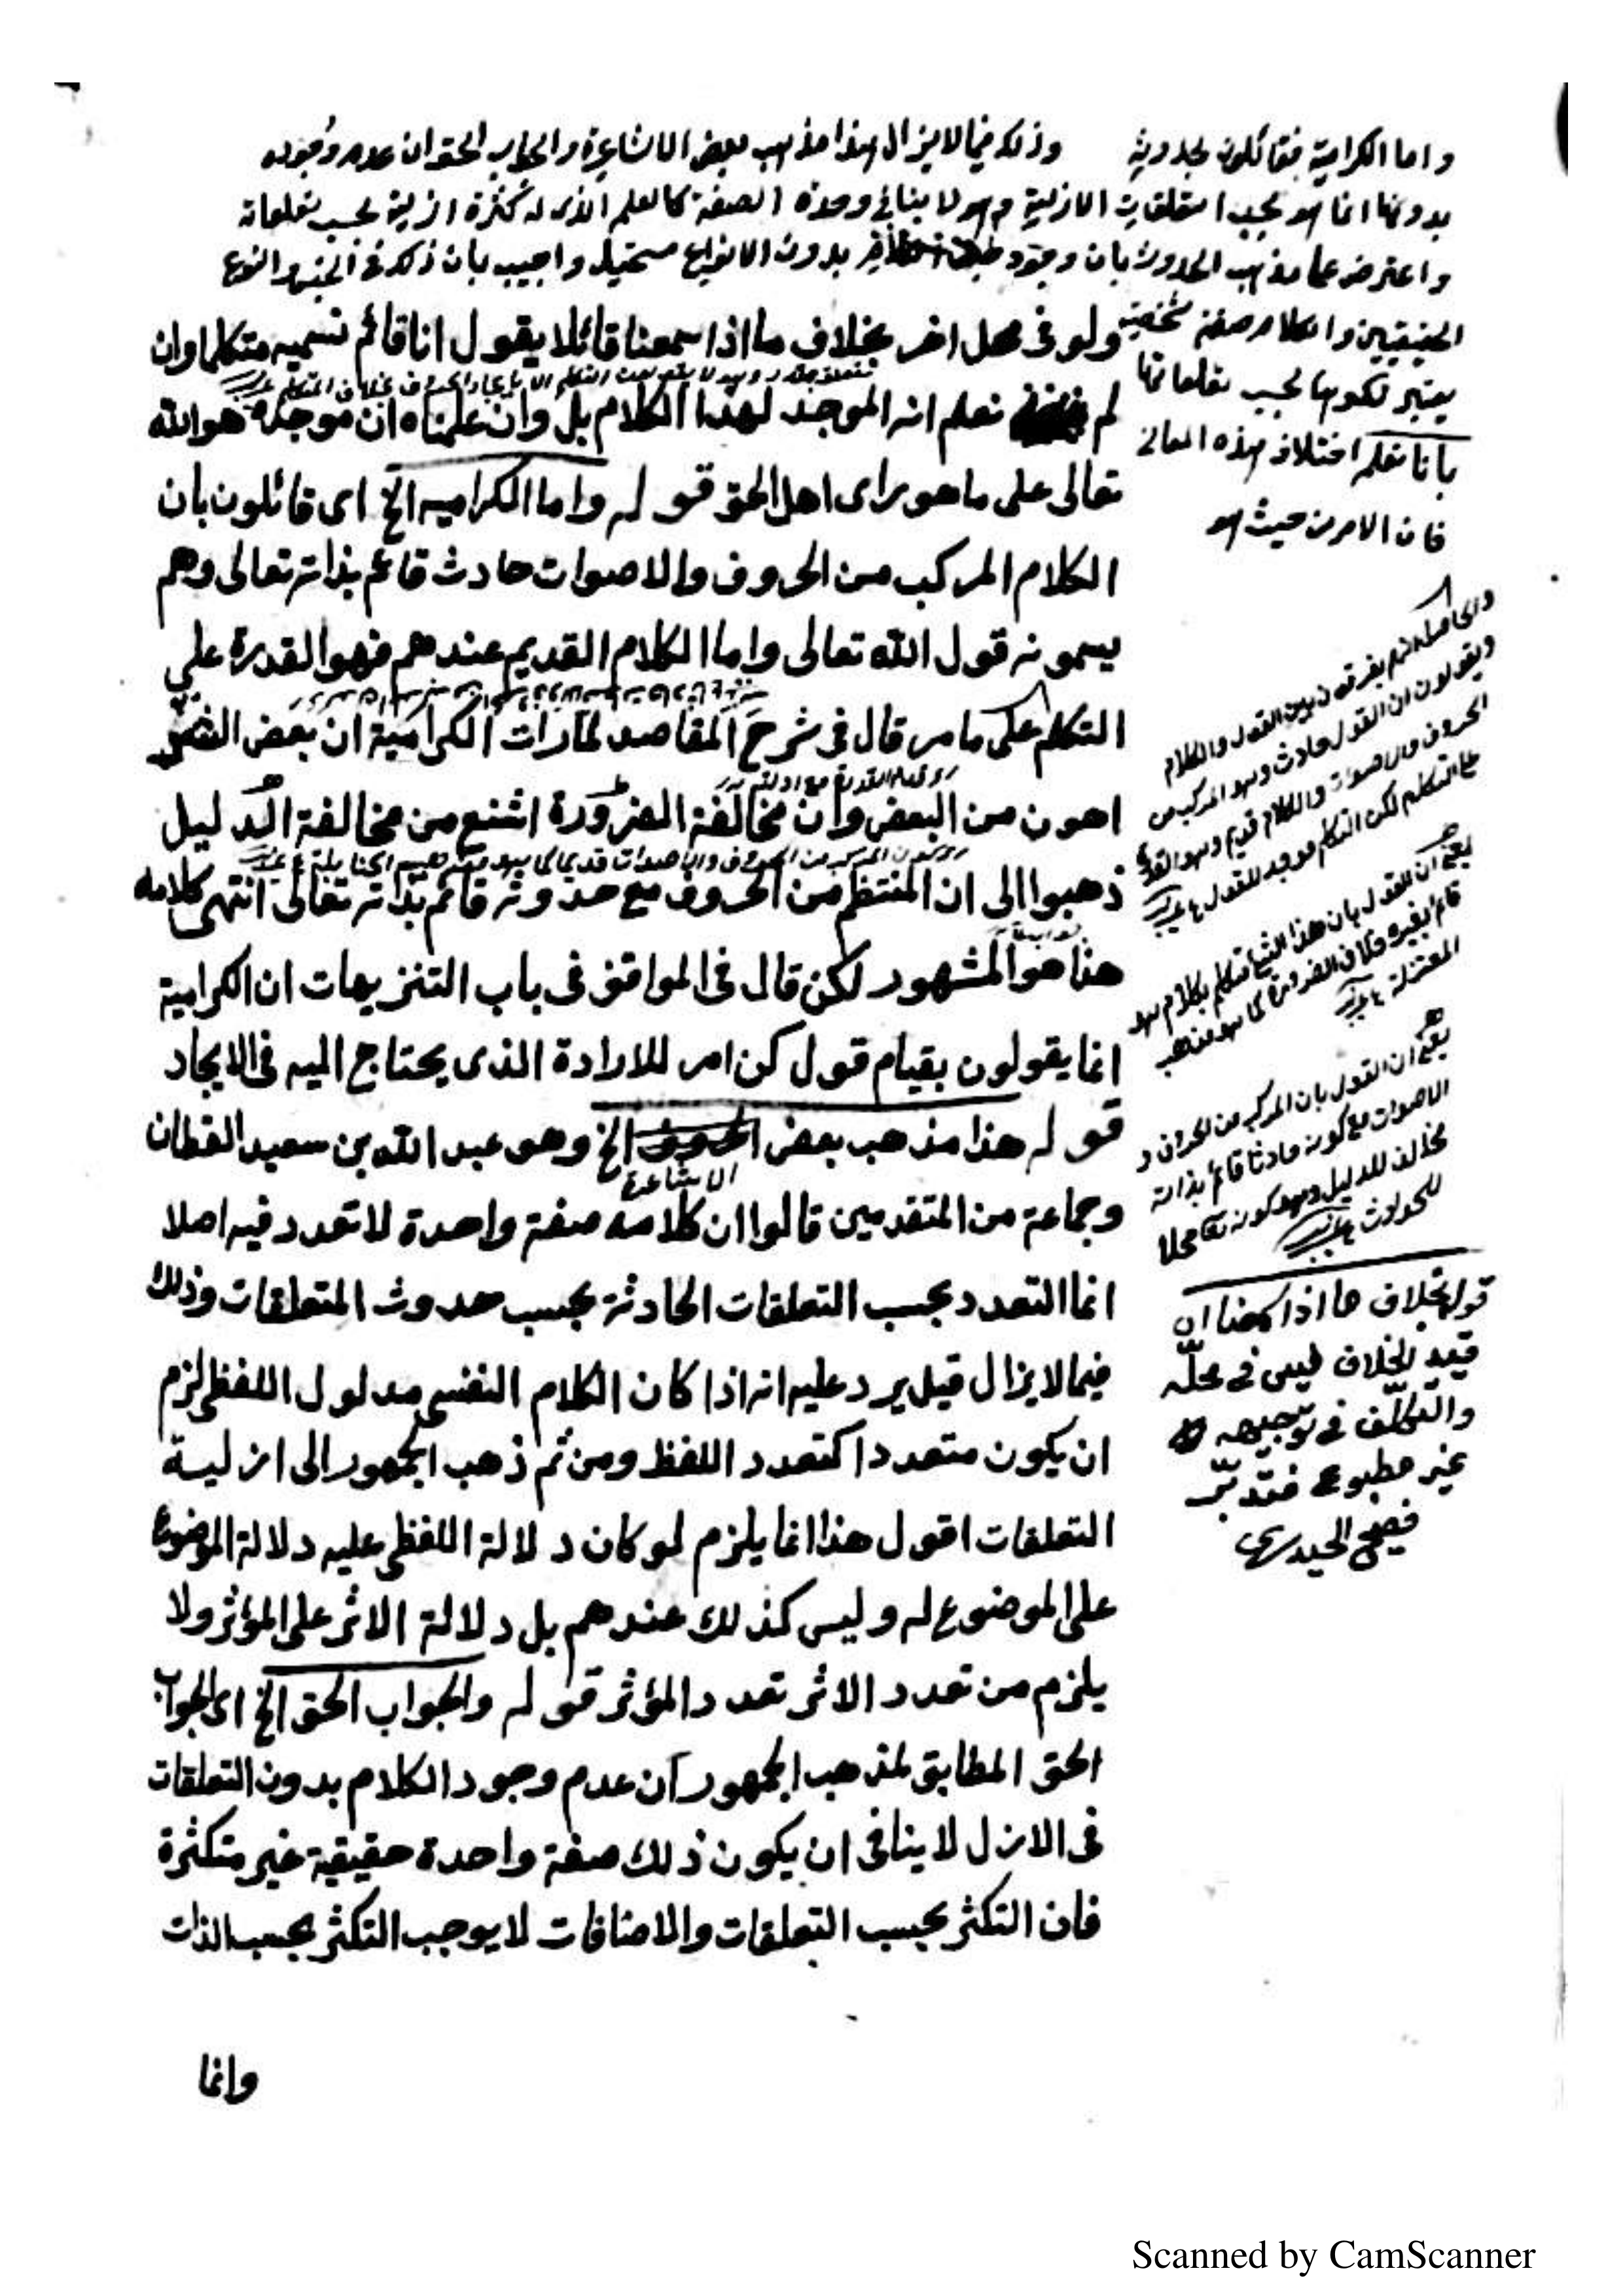 واما الكرامية فقائلون بحدوثه وذلك فيما لا يزال هذا مذهب بعض الاشاعرة والجواب الحق ان عدم وجوده
بدونها انما هو بحسب التعلقات الازلية وهو لا ينافي وحدة الصفة كالعلم الذى له كثرة ازلية بحسب تعلقاته
واعترض على مذهب الحدوث بان وجود بدون الانواع مستحيل واجيب بان ذلك في الجنس والنوع
الحقيقيين والكلام صفة شخصية
يعتبر تكثرها بحسب تعلقاتها
بانا نعلم اختلاف هذه المعانى
فان الامر من حيث هو
ولو فى محل اخر بخلاف ما اذا سمعنا قائلا يقول انا قائم نسميه متكلما وان
لم نعلم انه الموجد لهذا الكلام بل وان علمناه ان موجده هو الله
تعالى على ما هو راى اهل الحق قوله واما الكراميه الخ اى قائلون بان
الكلام المركب من الحروف والاصوات حادث قائم بذاته تعالى وهم
يسمونه قول الله تعالى واما الكلام القديم عندهم فهو القدرة على
التكلم على ما مر قال فى شرح المقاصد لما رات الكرامية ان بعض الشر
اهون من البعض وان مخالفة الضرورة اشنع من مخالفة الدليل
ذهبوا الى ان المنتظم من الحروف مع حدوثه قائم بذاته تعالى انتهى كلامه
هذا هو المشهور لكن قال فى المواقف فى باب التنزيهات ان الكرامية
انما يقولون بقيام قول كن امر للارادة الذى يحتاج اليه فى الايجاد
قوله هذا مذهب بعض الاشاعرة الخ وهو عبد الله بن سعيد القطان
وجماعة من المتقدمين قالوا ان كلامه صفة واحدة لا تعدد فيه اصلا
انما التعدد بحسب التعلقات الحادثة بحسب حدوث المتعلقات وذلك
فيما لا يزال قيل يرد عليه انه اذا كان الكلام النفسى مدلول اللفظى لزم
ان يكون متعددا كتعدد اللفظ ومن ثم ذهب الجمهور الى ازلية
التعلقات اقول هذا انما يلزم لو كان دلالة اللفظى عليه دلالة الموضوع
على الموضوع له وليس كذلك عندهم بل دلالة الاثر على المؤثر ولا
يلزم من تعدد الاثر تعدد المؤثر قوله والجواب الحق الخ اى الجواب
الحق المطابق لمذهب الجمهور ان عدم وجود الكلام بدون التعلقات
فى الازل لا ينافى ان يكون ذلك صفة واحدة حقيقية غير متكثرة
فان التكثر بحسب التعلقات والاضافات لا يوجب التكثر بحسب الذات
وانما
والحاصل انهم يفرقون بين القول والكلام
ويقولون ان القول حادث وهو المركب من
الحروف والاصوات والكلام قديم وهو القدرة
على التكلم لكن التكلم موجد للقول
يعنى ان القول بان هذا الشئ متكلم بكلام هو
قائم بغيره خلاف الضرورة كما هو مذهب
المعتزلة
يعنى ان القول بان المركب من الحروف و
الاصوات مع كونه حادثا قائم بذاته
مخالف للدليل وهو كونه تعالى محلا
للحوادث
قوله بخلاف ما اذا سمعنا ان
قيد الخلاف ليس فى محلّه
والتكلّف فى توجيهه
غير مطبوع فتدبّر
فصيح الحيدرى
Scanned by CamScanner